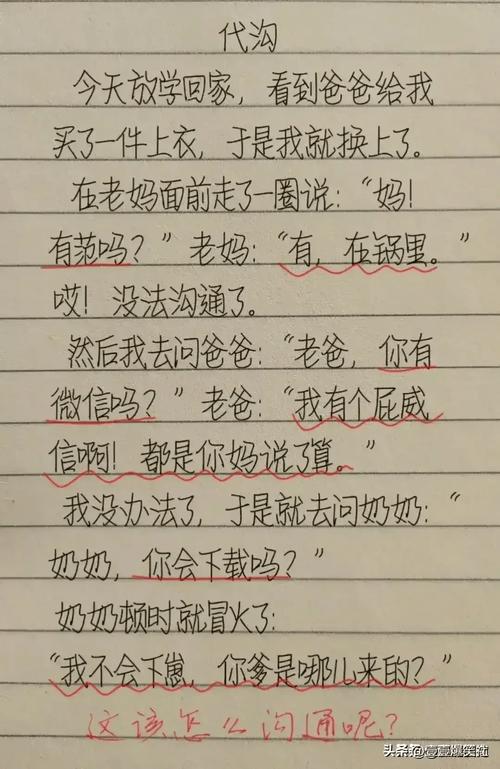 代沟
今天放学回家，看到爸爸给我
买了一件上衣，于是我就换上了。
在老妈面前走了一圈说：“妈！
有范吗？”老妈：“有，在锅里。”
哎！没法沟通了。
然后我去问爸爸：“老爸，你有
微信吗？”老爸：“我有个屁威
信啊！都是你妈说了算。”
我没办法了，于是就去问奶奶：“
奶奶，你会下载吗？”
奶奶顿时就冒火了：
“我不会下崽，你爹是哪儿来的？”
这该怎么沟通呢？